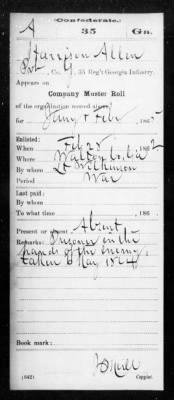 (Confederate.)
A 35 Ga.
Harrison Allen
Pvt, Co. G, 35 Reg't Georgia Infantry.
Appears on
Company Muster Roll
of the organization named above,
for Jany & Feby, 1865
Enlisted:
When Feb 25, 1862
Where Walton Co. Ga
By whom Lt Wilkinson
Period War
Last paid:
By whom
To what time , 186
Present or absent Absent
Remarks: Prisoner in the
hands of the enemy
taken 6 May 1864
Book mark:
(642) Copyist.